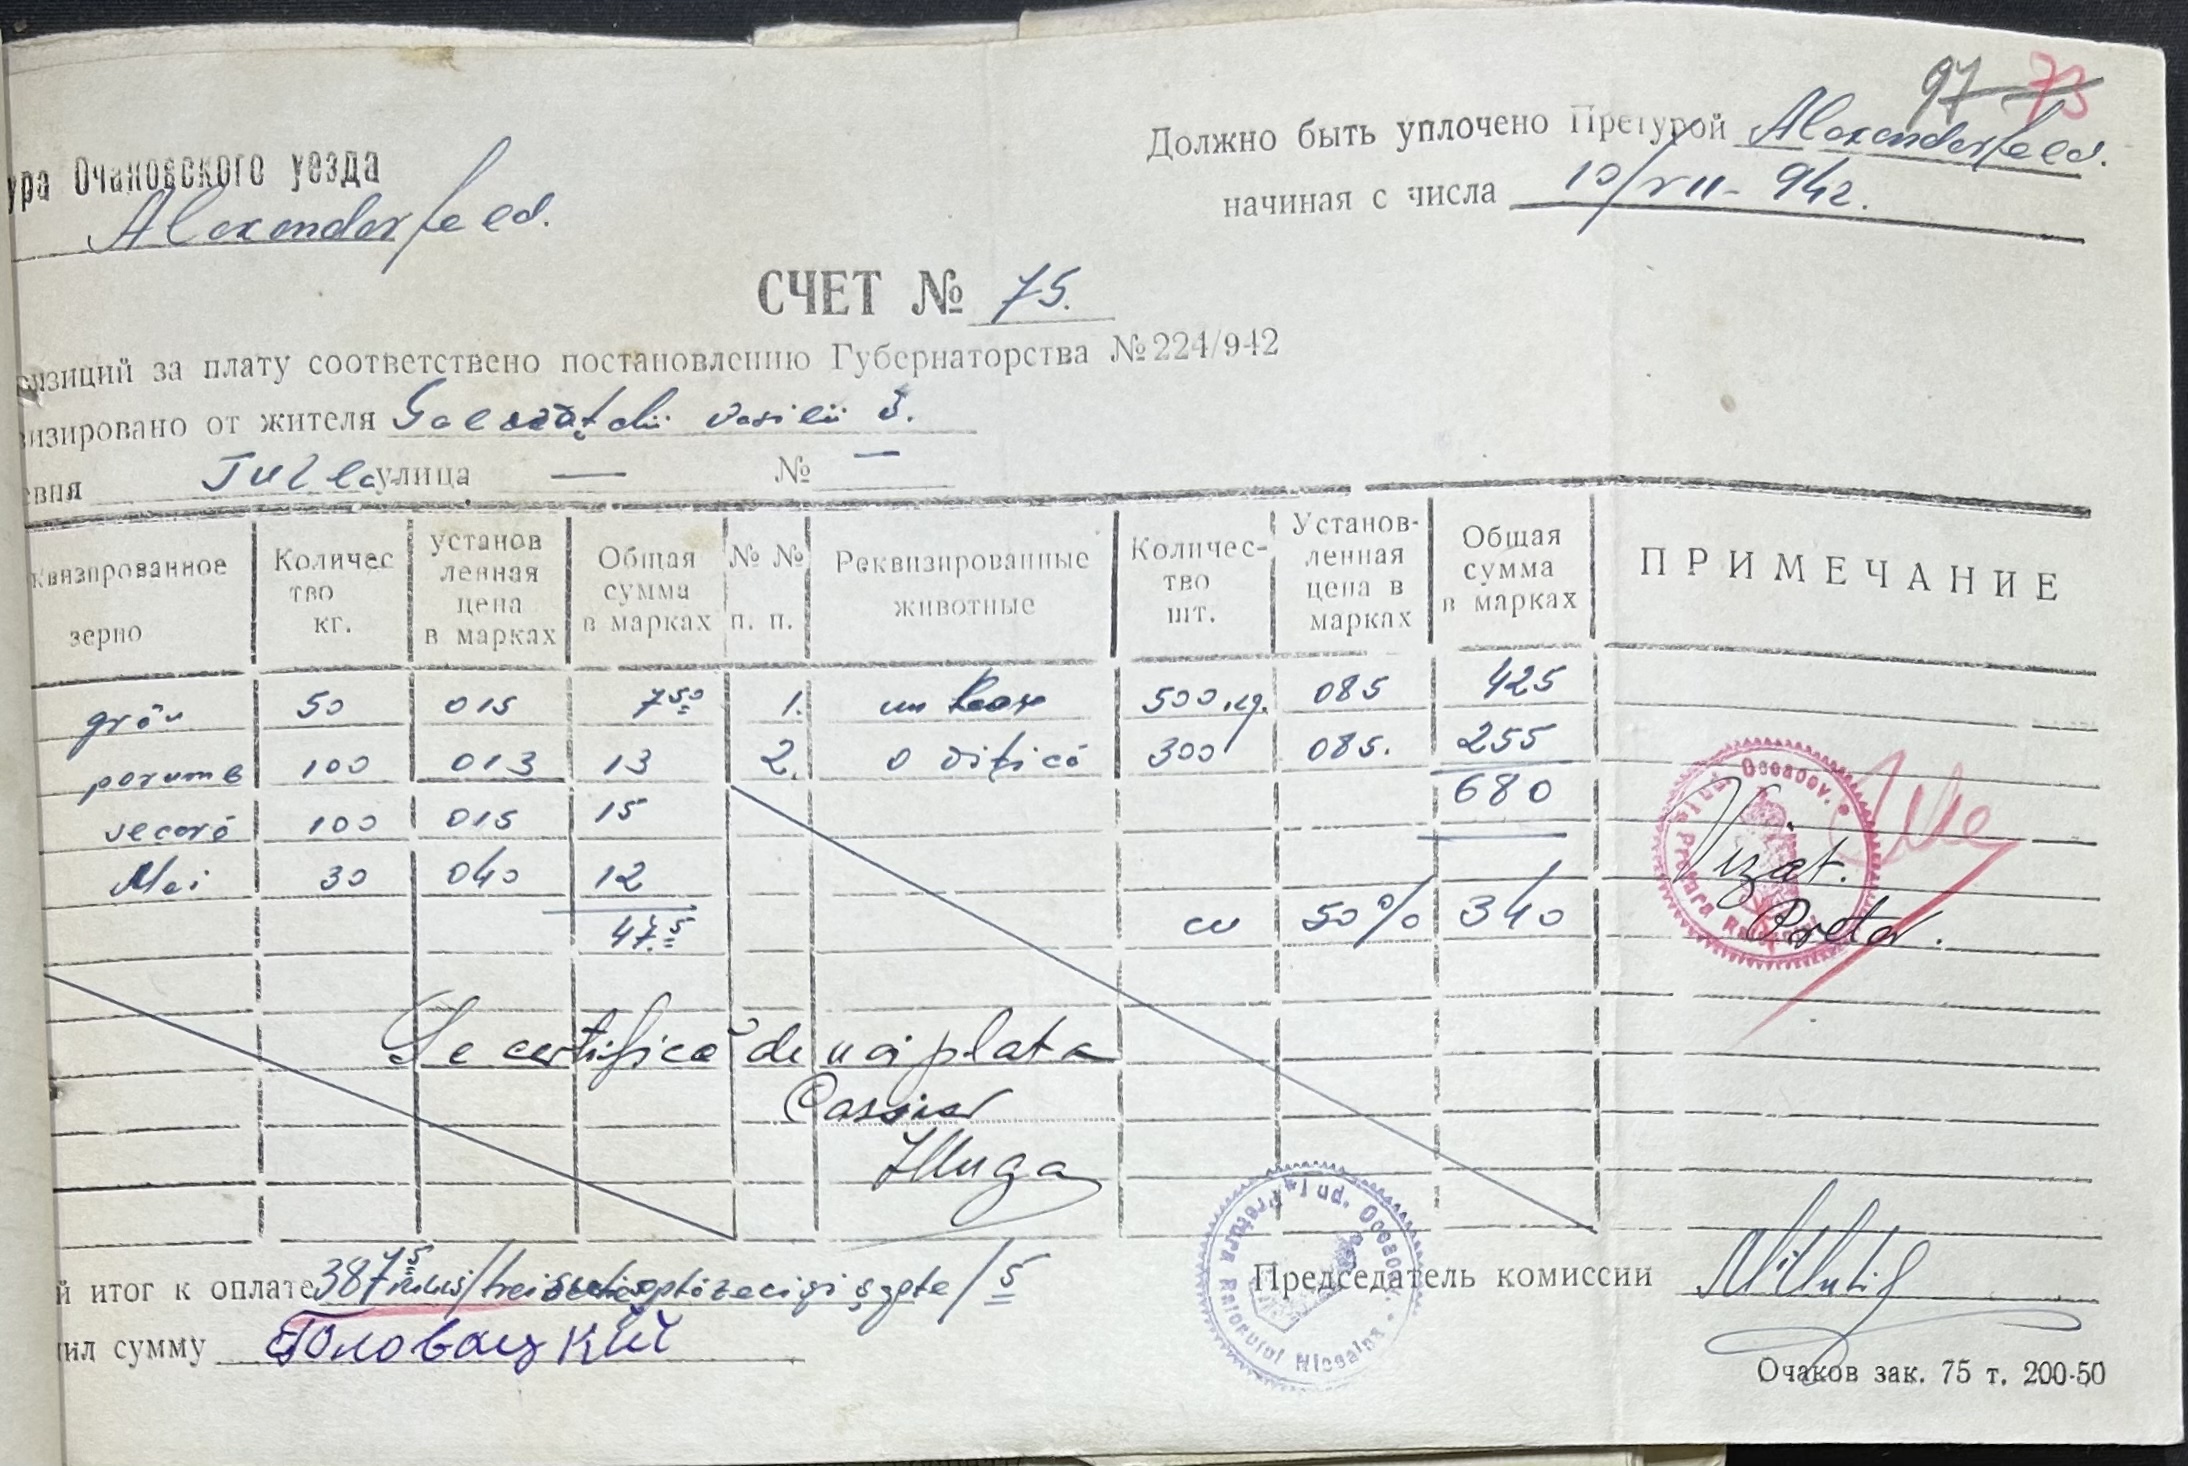 97 73
Должно быть уплочено Претурой Alexanderfeld.
ура Очаковского уезда
начиная с числа 10/VII-942.
Alexanderfeld.
СЧЕТ № 75.
изиций за плату соответствено постановлению Губернаторства № 224/942
изировано от жителя vasilii
евня улица — № —
квизированное зерно
Количес тво кг.
установ ленная цена в марках
Общая сумма в марках
№ № п. п.
Реквизированные животные
Количес- тво шт.
Установ- ленная цена в марках
Общая сумма в марках
ПРИМЕЧАНИЕ
grâu 50 015 7 50 1. un 500 kg. 085 425
porumb 100 013 13 2. o vițică 300 085. 255
secară 100 015 15 680
Mei 30 040 12
47.5 cu 50% 340
Vizat.
Pretor.
Se certifică de noi plata
Cassier
й итог к оплате 387 5 /treisuteoptzecișișapte/ 5
Председатель комиссии
ил сумму Головацкий
Очаков зак. 75 т. 200-50
Pretura Raionului * Jud. Oceacov.
Pretura Raionului * Jud. Oceacov.